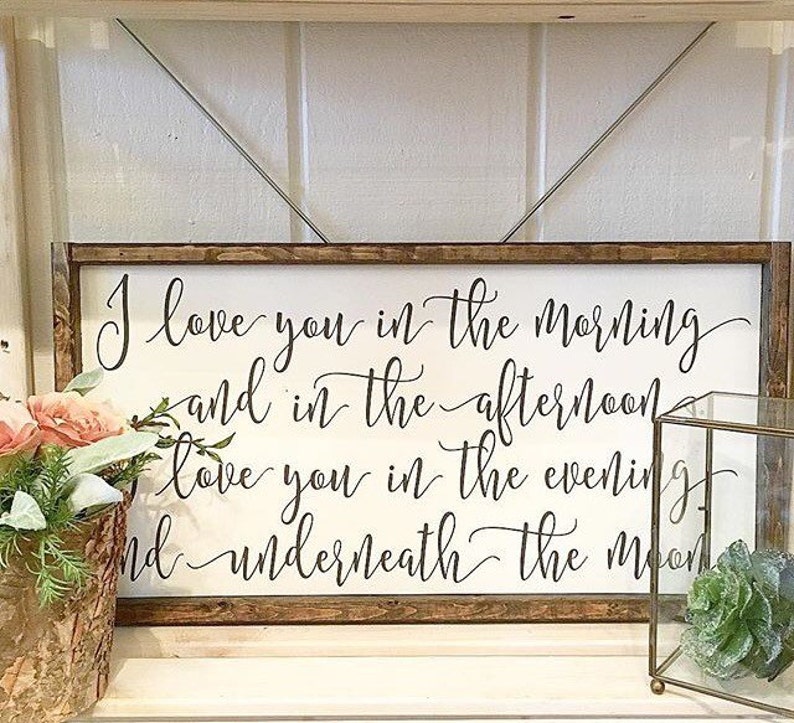 I love you in the morning
and in the afternoon
love you in the evening
and underneath the moon